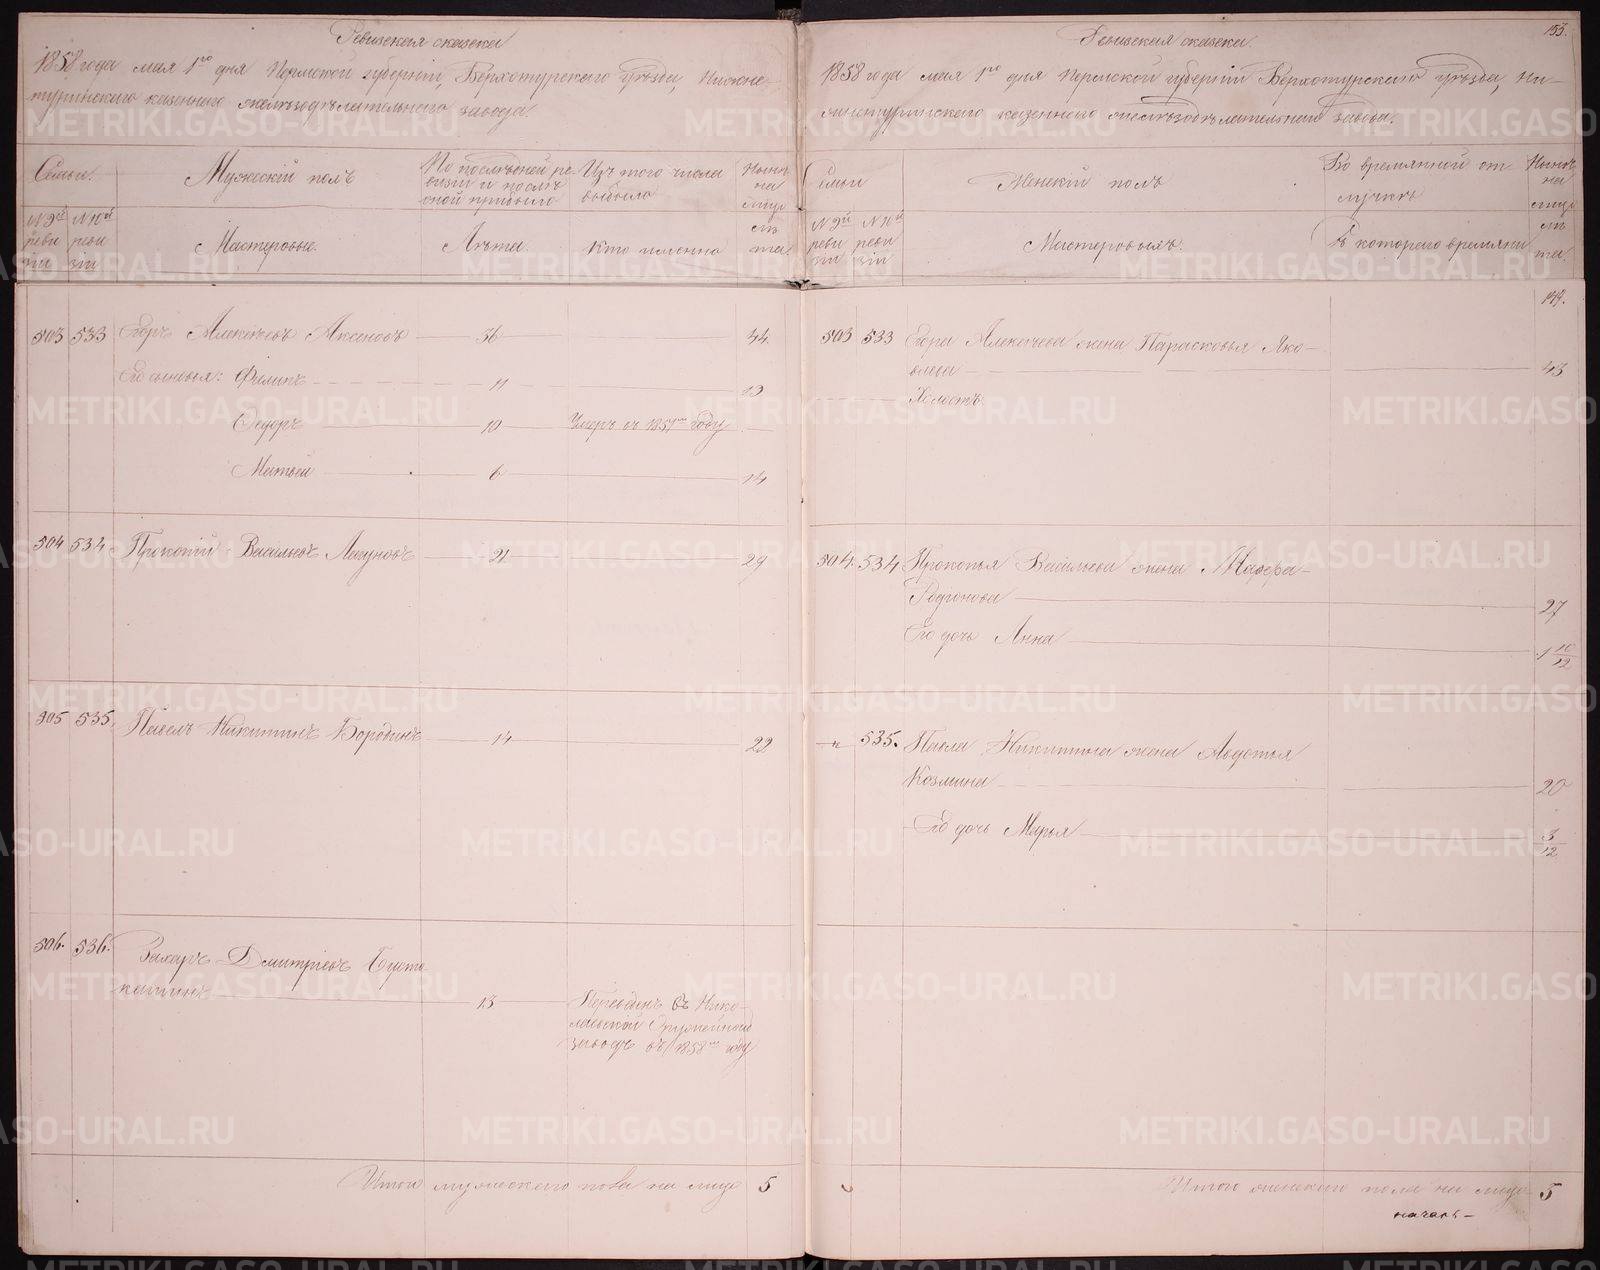 Ревизская сказка
1858 года мая 1го дня Пермской губерніи, Верхотурскаго уѣзда, Нижне-
туринскаго казеннаго желѣзодѣлательнаго завода.
Семьи.
Мужескій полъ
По послѣдней ре-
визіи и послѣ
оной прибыло
Изъ того числа
выбыло
Нынѣ
на
лицо
№ 9ой
реви
зіи
№ 10ой
реви
зіи
Мастеровые.
Лѣта.
Кто именно
лѣ
та.
503 533 Егоръ Алексѣевъ Аксеновъ 36 44
Его сыновья: Филипъ 11 19
Федоръ 10 Умеръ въ 1851мъ году
Матвей 6 14
504 534 Прокопій Васильевъ Лагуновъ 21 29
505 535. Павелъ Никитинъ Бородинъ 14 22
506. 536. Захаръ Дмитріевъ
13 Переведенъ въ Нико-
лаевской Оружейный
заводъ въ 1858мъ году
Итого мужескаго пола на лицо 5
Ревизская сказка.
153.
1858 года мая 1го дня Пермской губерніи Верхотурскаго уѣзда, Ни-
жнетуринскаго казеннаго желѣзодѣлательнаго завода.
Семьи
Женскій полъ
Во времянной от
лучкѣ
Нынѣ
на
лицо
№ 9ой
реви
зіи
№ 10ой
реви
зіи
Мастеровыхъ.
Съ котораго времяни
лѣ
та.
149.
503 533 Егора Алексѣева жена Парасковья Яко-
влева 43
Холостъ
504. 534 Прокопья Васильева жена Мавра
Родіонова 27
Его дочь Анна 1 10/12
535. Павла Никитина жена Авдотья
Козмина 20
Его дочь Марья 3/12
Итого женскаго пола на лицо 5
METRIKI.GASO-URAL.RU